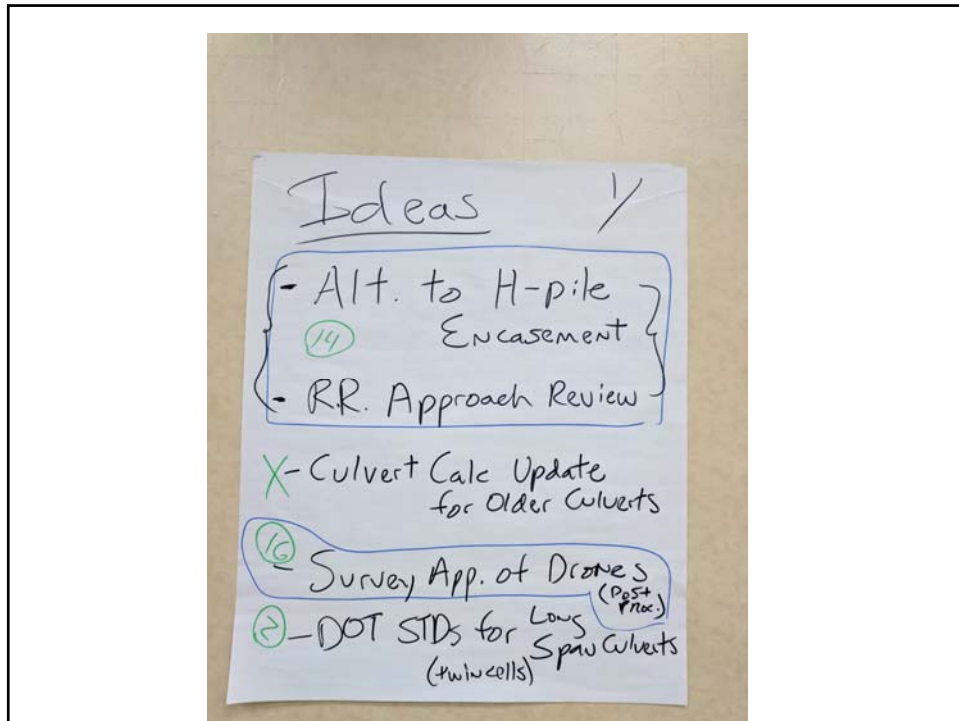 Ideas 1/
- Alt. to H-pile
14 Encasement
- R.R. Approach Review
X - Culvert Calc Update
for Older Culverts
16
- Survey App. of Drones
(Post Proc.)
2 - DOT STDs for Long
(twin cells) Span Culverts